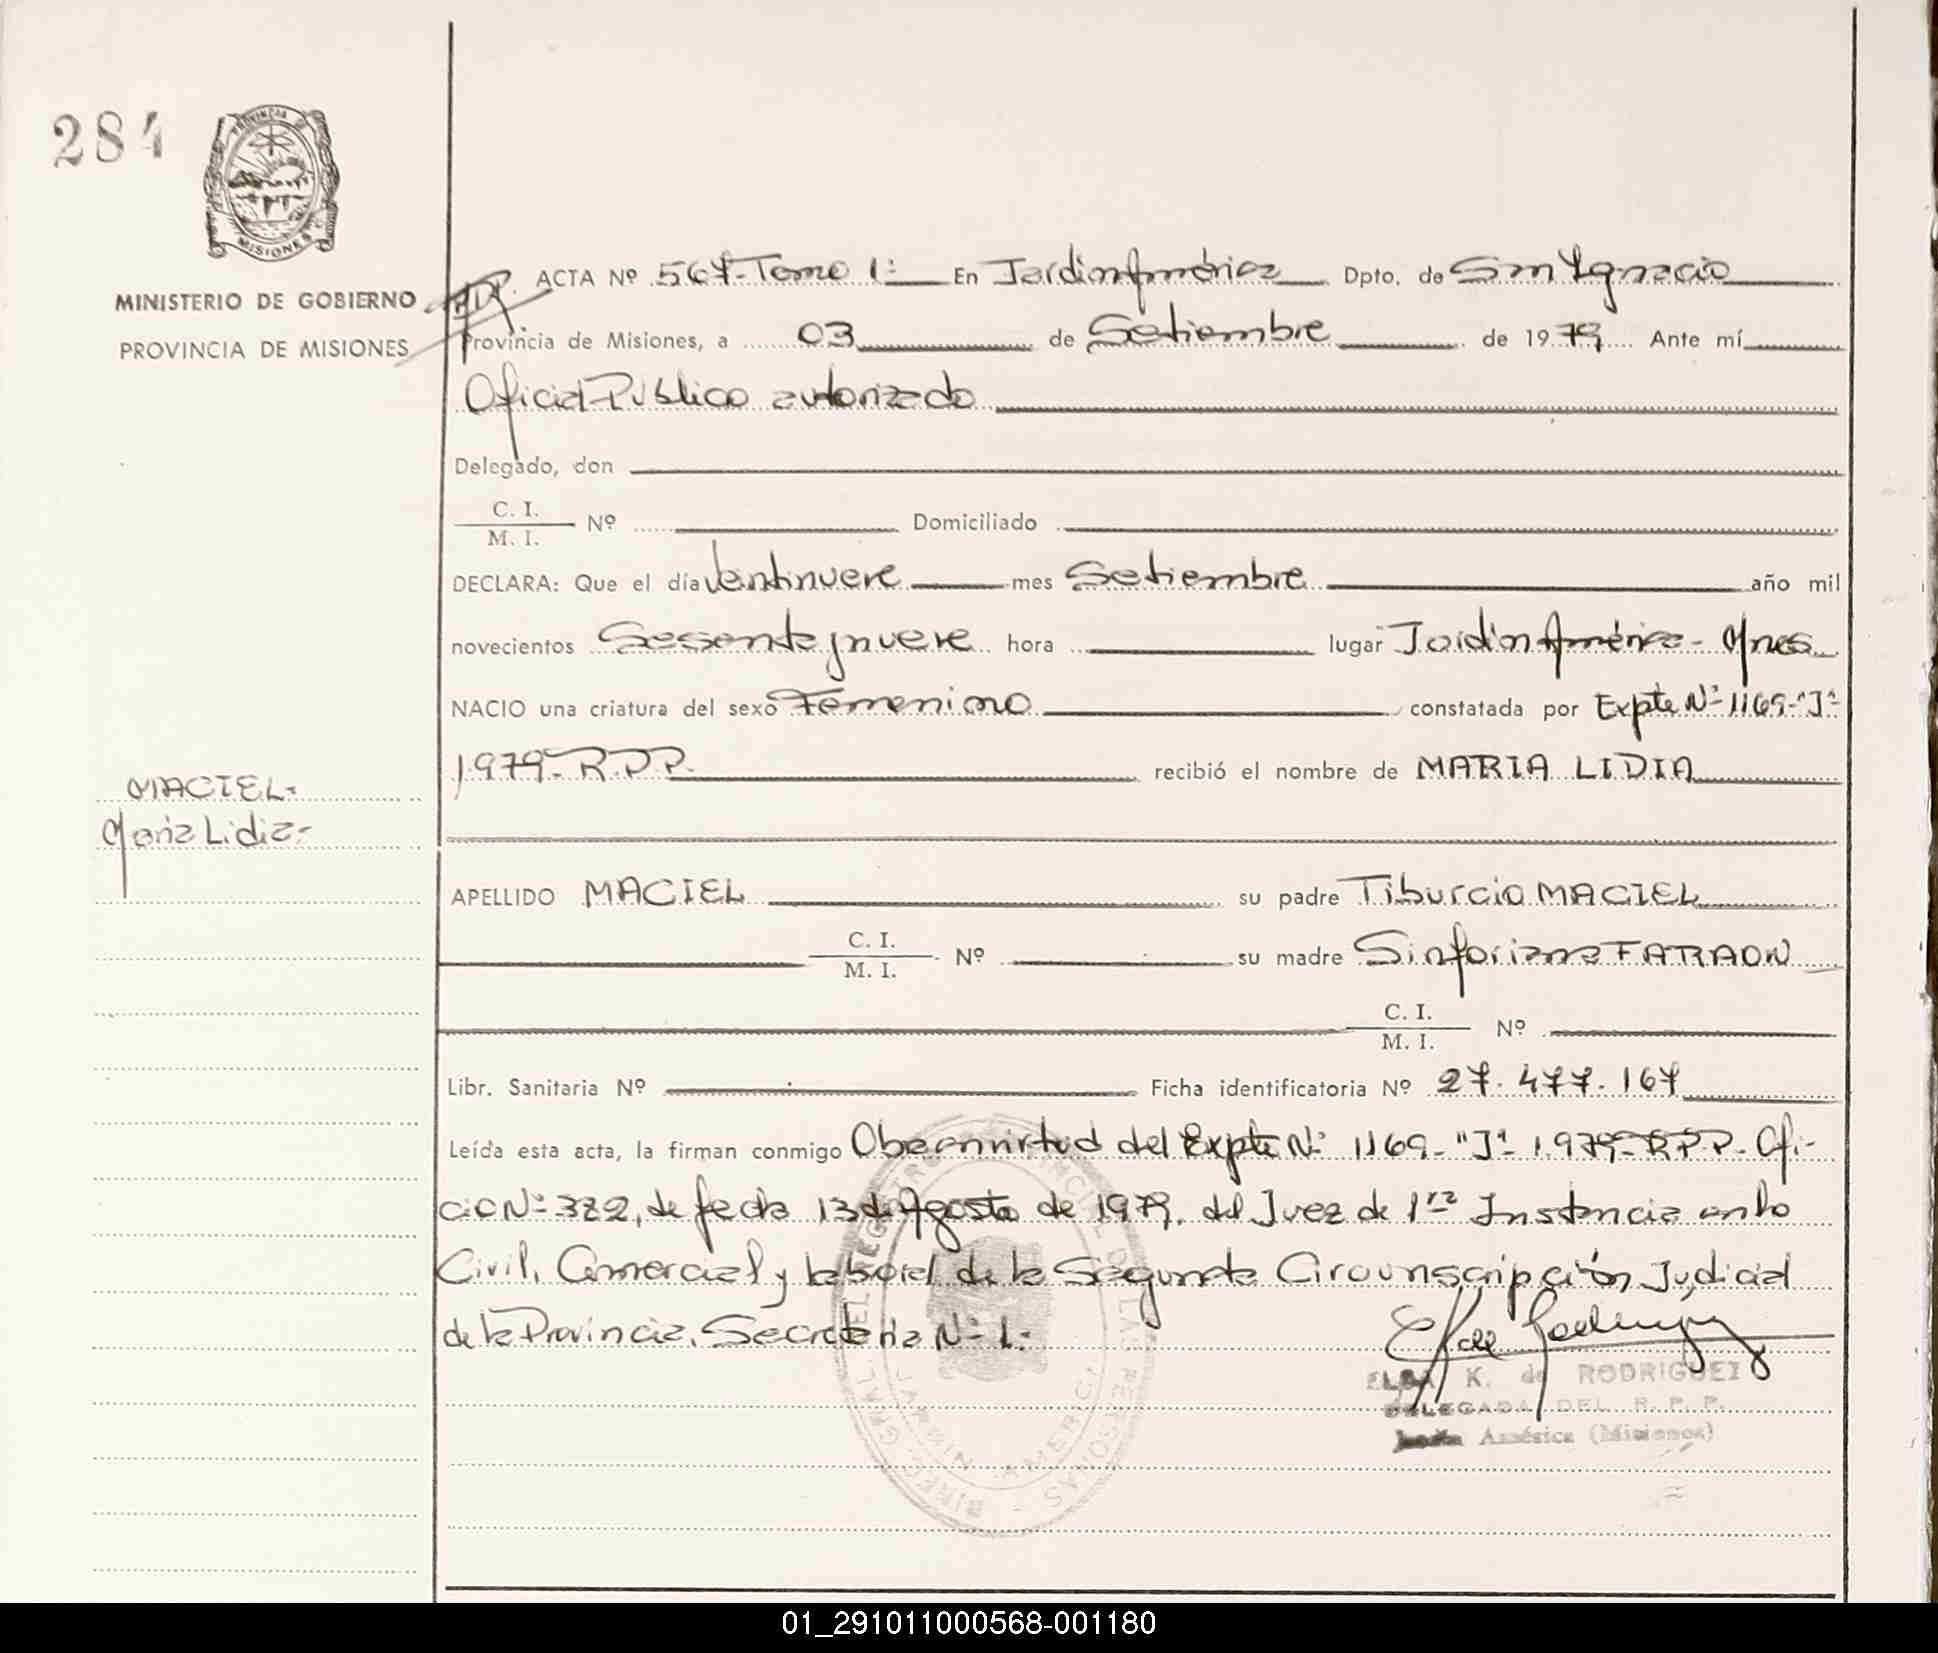 284
PROVINCIA DE
MISIONES
MINISTERIO DE GOBIERNO
PROVINCIA DE MISIONES
ACTA Nº 567-Tomo 1: En Jardin América Dpto. de San Ignacio
Provincia de Misiones, a 03 de Setiembre de 1979 Ante mí
Oficial Público autorizado
Delegado, don
C. I.
M. I. Nº Domiciliado
DECLARA: Que el día Ventinueve mes Setiembre año mil
novecientos Sesenta y nueve hora lugar Jardin América - Mnes
NACIO una criatura del sexo Femenino constatada por Expte Nº 1169-"J"-
1979-R.P.P. recibió el nombre de MARIA LIDIA
MACIEL-
Maria Lidia-
APELLIDO MACIEL su padre Tiburcio MACIEL
C. I.
M. I. Nº su madre Sinforiana FARAON
C. I.
M. I. Nº
Libr. Sanitaria Nº Ficha identificatoria Nº 27.477.167
Leída esta acta, la firman conmigo Obra en virtud del Expte Nº 1169-"J"-1979-R.P.P.-Ofi-
cio Nº 382, de fecha 13 de Agosto de 1979, del Juez de 1ra Instancia en lo
Civil, Comercial y laboral de la Segunda Circunscripción Judicial
de la Provincia, Secretaria Nº 1.
ELBA K. de RODRIGUEZ
DELEGADA DEL R. P. P.
Jardín América (Misiones)
DIREC. GRAL. DEL REGISTRO PROVINCIAL DE LAS PERSONAS
JARDIN AMERICA
01_291011000568-001180